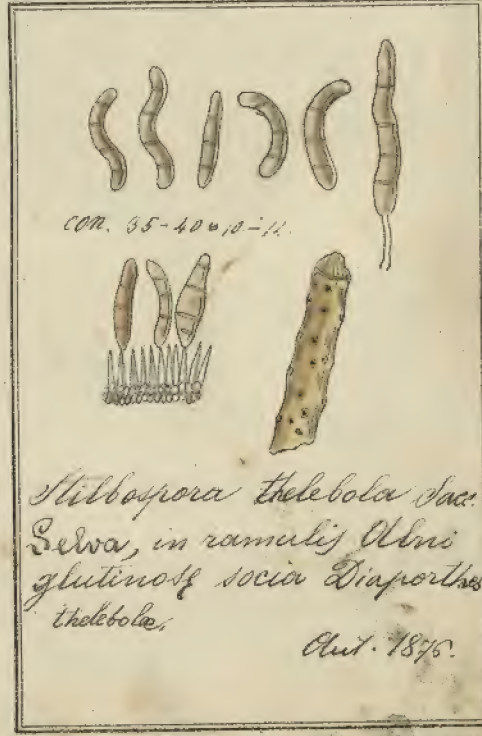 con. 35-40 = 10-12.
Stilbospora thelebola Sacc.
Selva, in ramulis Alni
glutinosæ socia Diaporthes
thelebolæ.
Aut. 1876.